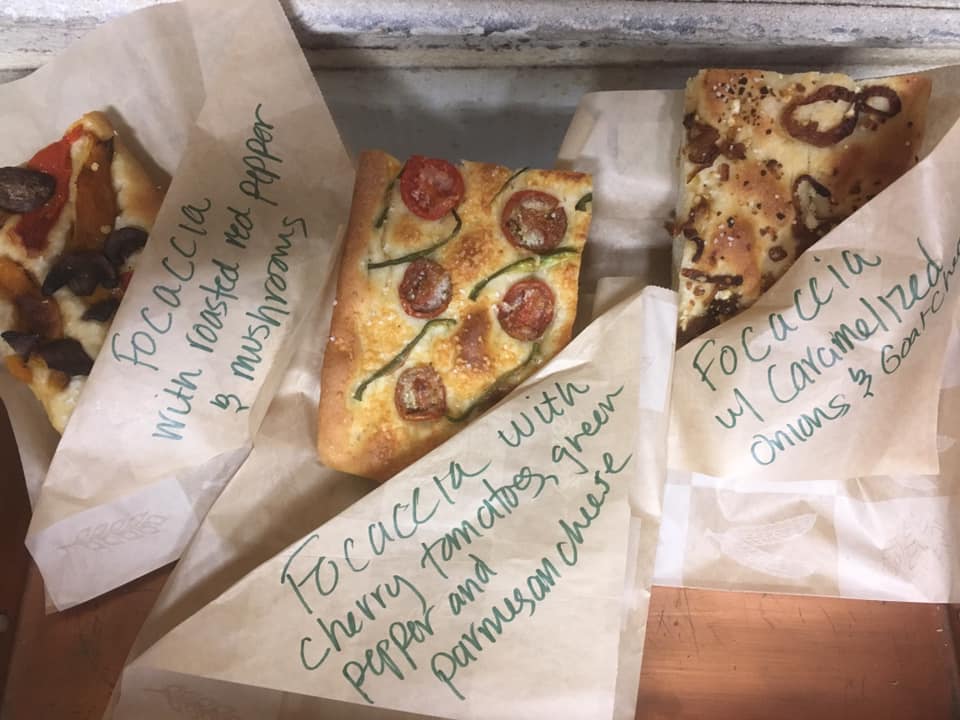 Focaccia
with roasted red pepper
& mushrooms
Focaccia with
cherry tomatoes, green
pepper and
parmesan cheese
Focaccia
w/ Caramelized
onions & Goat Chee